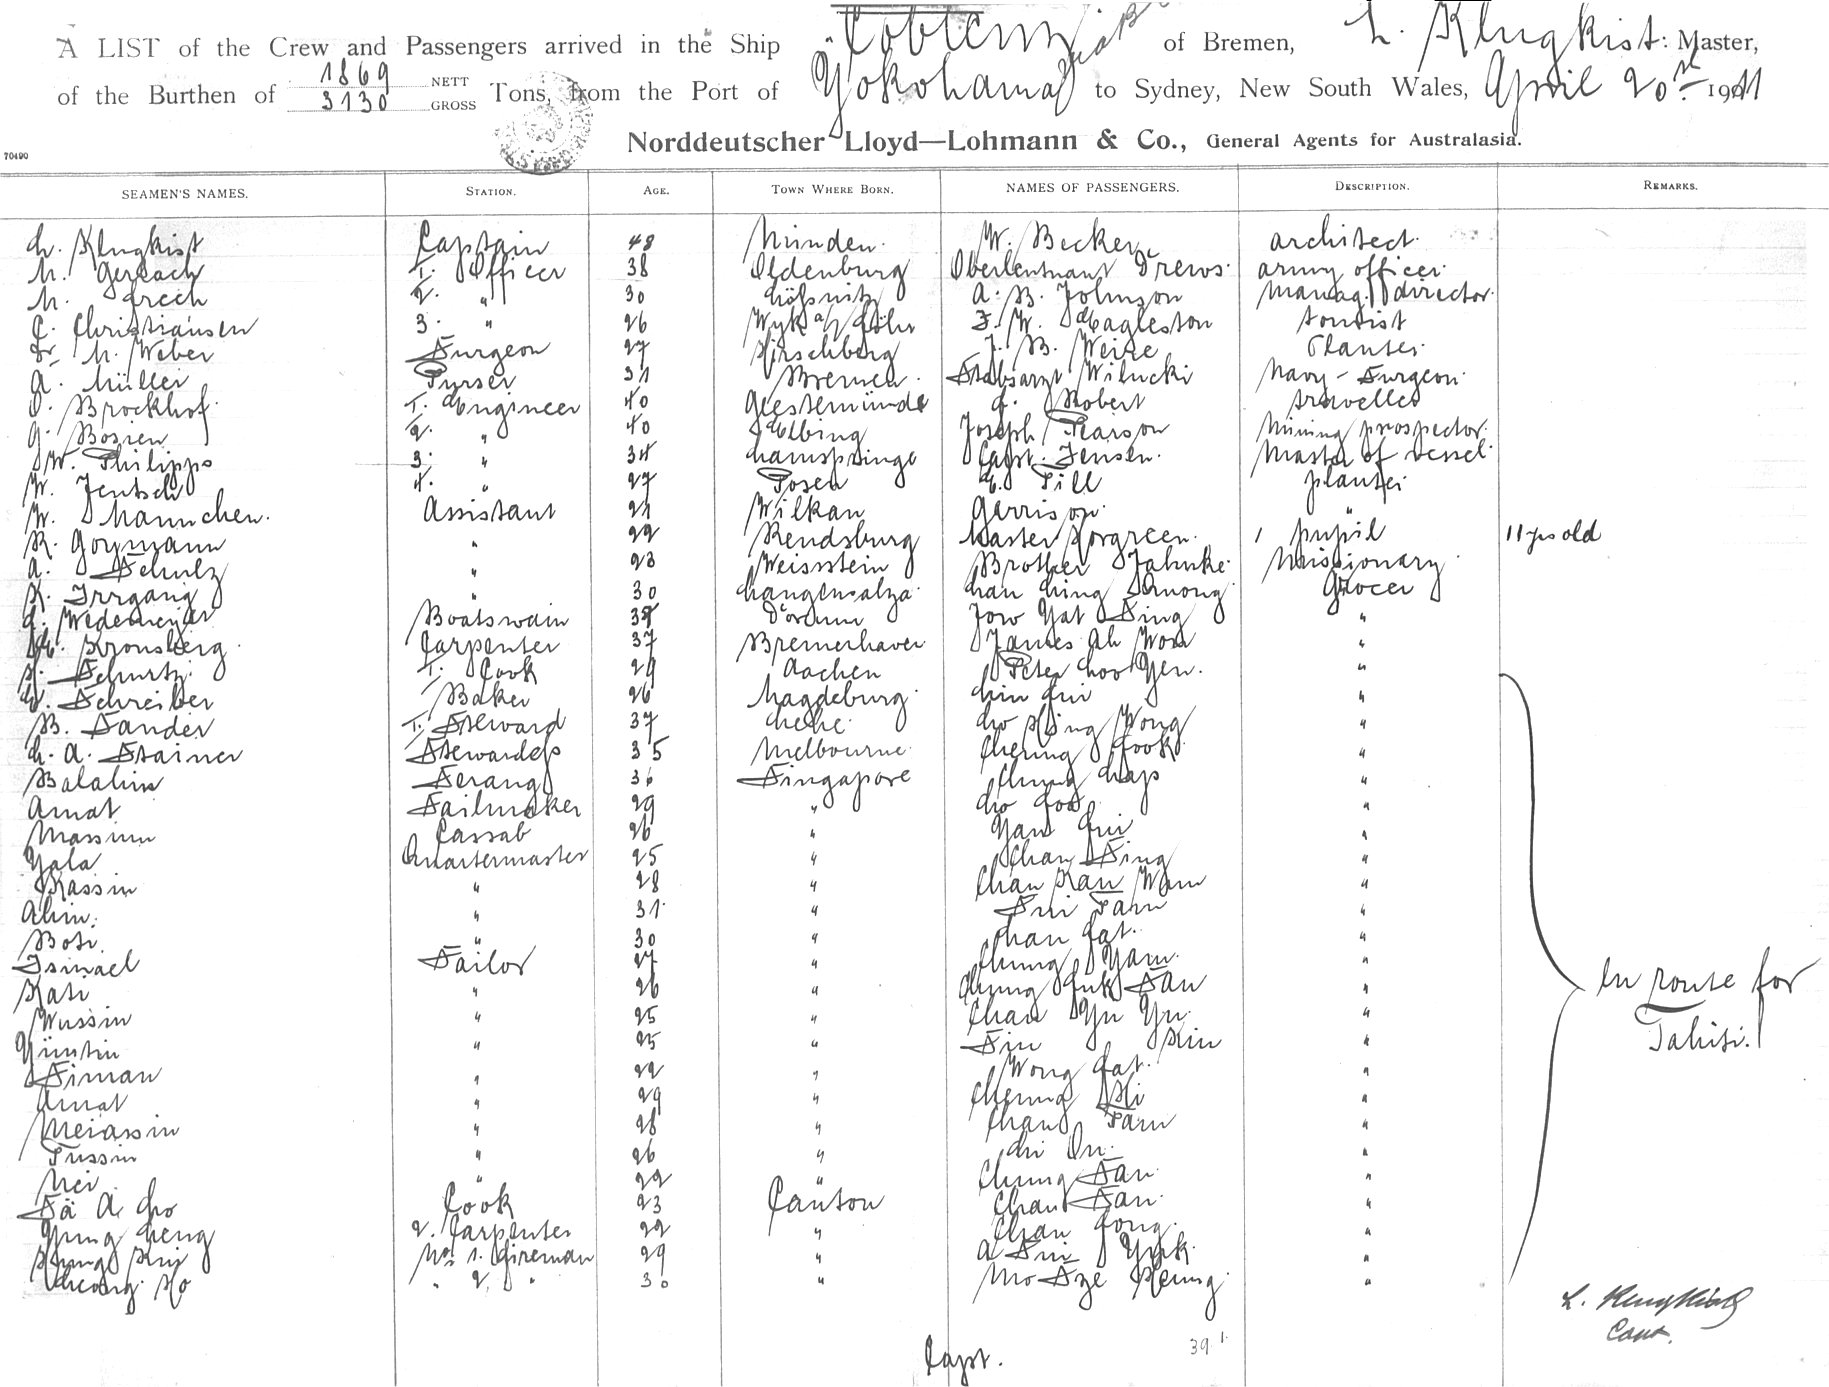 A LIST of the Crew and Passengers arrived in the Ship "Coblenz" of Bremen, L. Klugkist: Master,
of the Burthen of 1869 NETT 3130 GROSS Tons, from the Port of Yokohama to Sydney, New South Wales, April 20st 1911
Norddeutscher Lloyd—Lohmann & Co., General Agents for Australasia.
70490
SEAMEN'S NAMES. STATION. AGE. TOWN WHERE BORN. NAMES OF PASSENGERS. DESCRIPTION. REMARKS.
L. Klugkist Captain 48 Münden. W. Becker architect.
N. Gerlach I. Officer 38 Oldenburg Oberleutnant Drews. army officer.
M. Grech 2. " 30 Lößnitz A. B. Johnson Manag. director.
C. Christiansen 3. " 26 Wyk a/ Föhr F. W. Eagleston tourist
Dr. M. Weber Surgeon 27 Hirschberg J. B. Weire Planter.
A. Müller Purser 31 Bremen. Stabsarzt Wilucki Navy-Surgeon.
O. Brockhof. I. Engineer 40 Geestemünde J. Robert traveller
G. Bosien 2. " 40 Elbing Joseph Pearson Mining prospector.
W. Philipps 3. " 34 Lamspringe Capt. Jensen. Master of vessel.
W. Jentsch 4. " 27 Posen E. Till planter
W. Mannchen. Assistant 21 Wilkau Garrison. "
R. Goymann " 22 Rendsburg Master Norgreen. 1 pupil 11 yrs old
A. Schulz " 23 Weisstein Brother Jahnke. Missionary.
K. Irrgang " 30 Langensalza. Chan Ching Amoong. Grocer
J. Wedemeyer Boatswain 38 Dorum Jow Yat Sing "
H. Kronsberg. Carpenter 37 Bremerhaven James Ah Won "
H. Schurtz. I. Cook 29 Aachen Peter Loo Yen. "
W. Schreiber Baker 26 Magdeburg. Lin Fui "
B. Sander I. Steward 37 Lehe. Lo Hing Wong "
L. A. Stainer Stewardess 35 Melbourne. Cheung Fook. "
Balahim Serang 36 Singapore Chung Chap "
Amat Sailmaker 29 " Lo Foo. "
Massum Cassab 26 " Yan Fui "
Yala Quartermaster 25 " Chan Sing "
Kassim " 28 " Chan Kan Wam "
Ahin. " 31 " Sui Tam "
Boti. " 30 " Chan Fat. "
Ismael Sailor 27 " Chung Yam. "
Kati " 26 " Chung Fuk San "
Wussin " 25 " Chan Yu Yu. "
Yüntin " 25 " Sin Kin "
Siman " 22 " Wong Fat. "
Amat " 29 " Cheung Hi "
Meiassin " 28 " Chan Tam "
Tussin " 26 " Li On. "
Mei " 22 " Chung San. "
Sä A. Ho Cook 23 Canton Chan San. "
Yung Cheng 2. Carpenter 22 " Chan Fong. "
Kung Kui No. 1. Fireman 29 " A Sui York. "
Cheong Ho " 2. " 30 " Mo Sze Keung. "
In route for
Tahiti.
L. Klugkist
Capt.
39 1.
Capt.